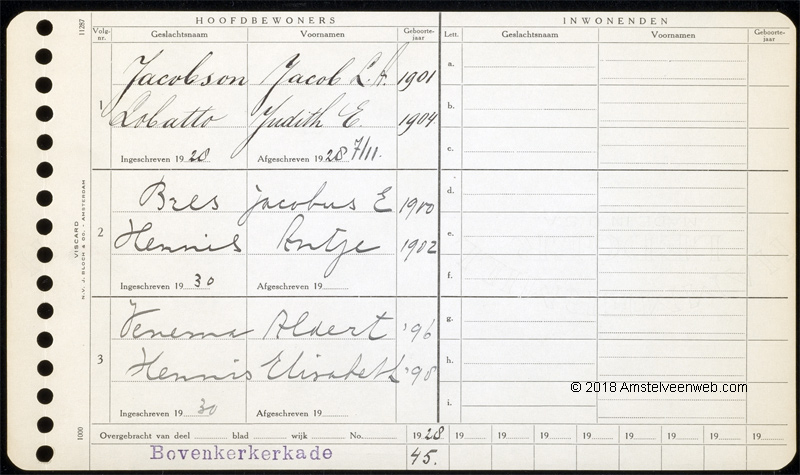 HOOFDBEWONERS
INWONENDEN
11287
Volg-nr.
Geslachtsnaam
Voornamen
Geboorte-jaar
Lett.
Geslachtsnaam
Voornamen
Geboorte-jaar
1
Jacobson Jacob L. A. 1901
Lobatto Judith E. 1904
Ingeschreven 1928 Afgeschreven 1928 7/11.
2
Bres Jacobus E 1900
Hennis Antje 1902
Ingeschreven 1930 Afgeschreven 19
3
Venema Aldert '96
Hennis Elisabeth '98
Ingeschreven 1930 Afgeschreven 19
a.
b.
c.
d.
e.
f.
g.
h.
i.
VISCARD
N.V. J. BLOCH & CO. - AMSTERDAM
1000
Overgebracht van deel blad wijk No. 1928 19 19 19 19 19 19 19 19
Bovenkerkerkade 45.
© 2018 Amstelveenweb.com